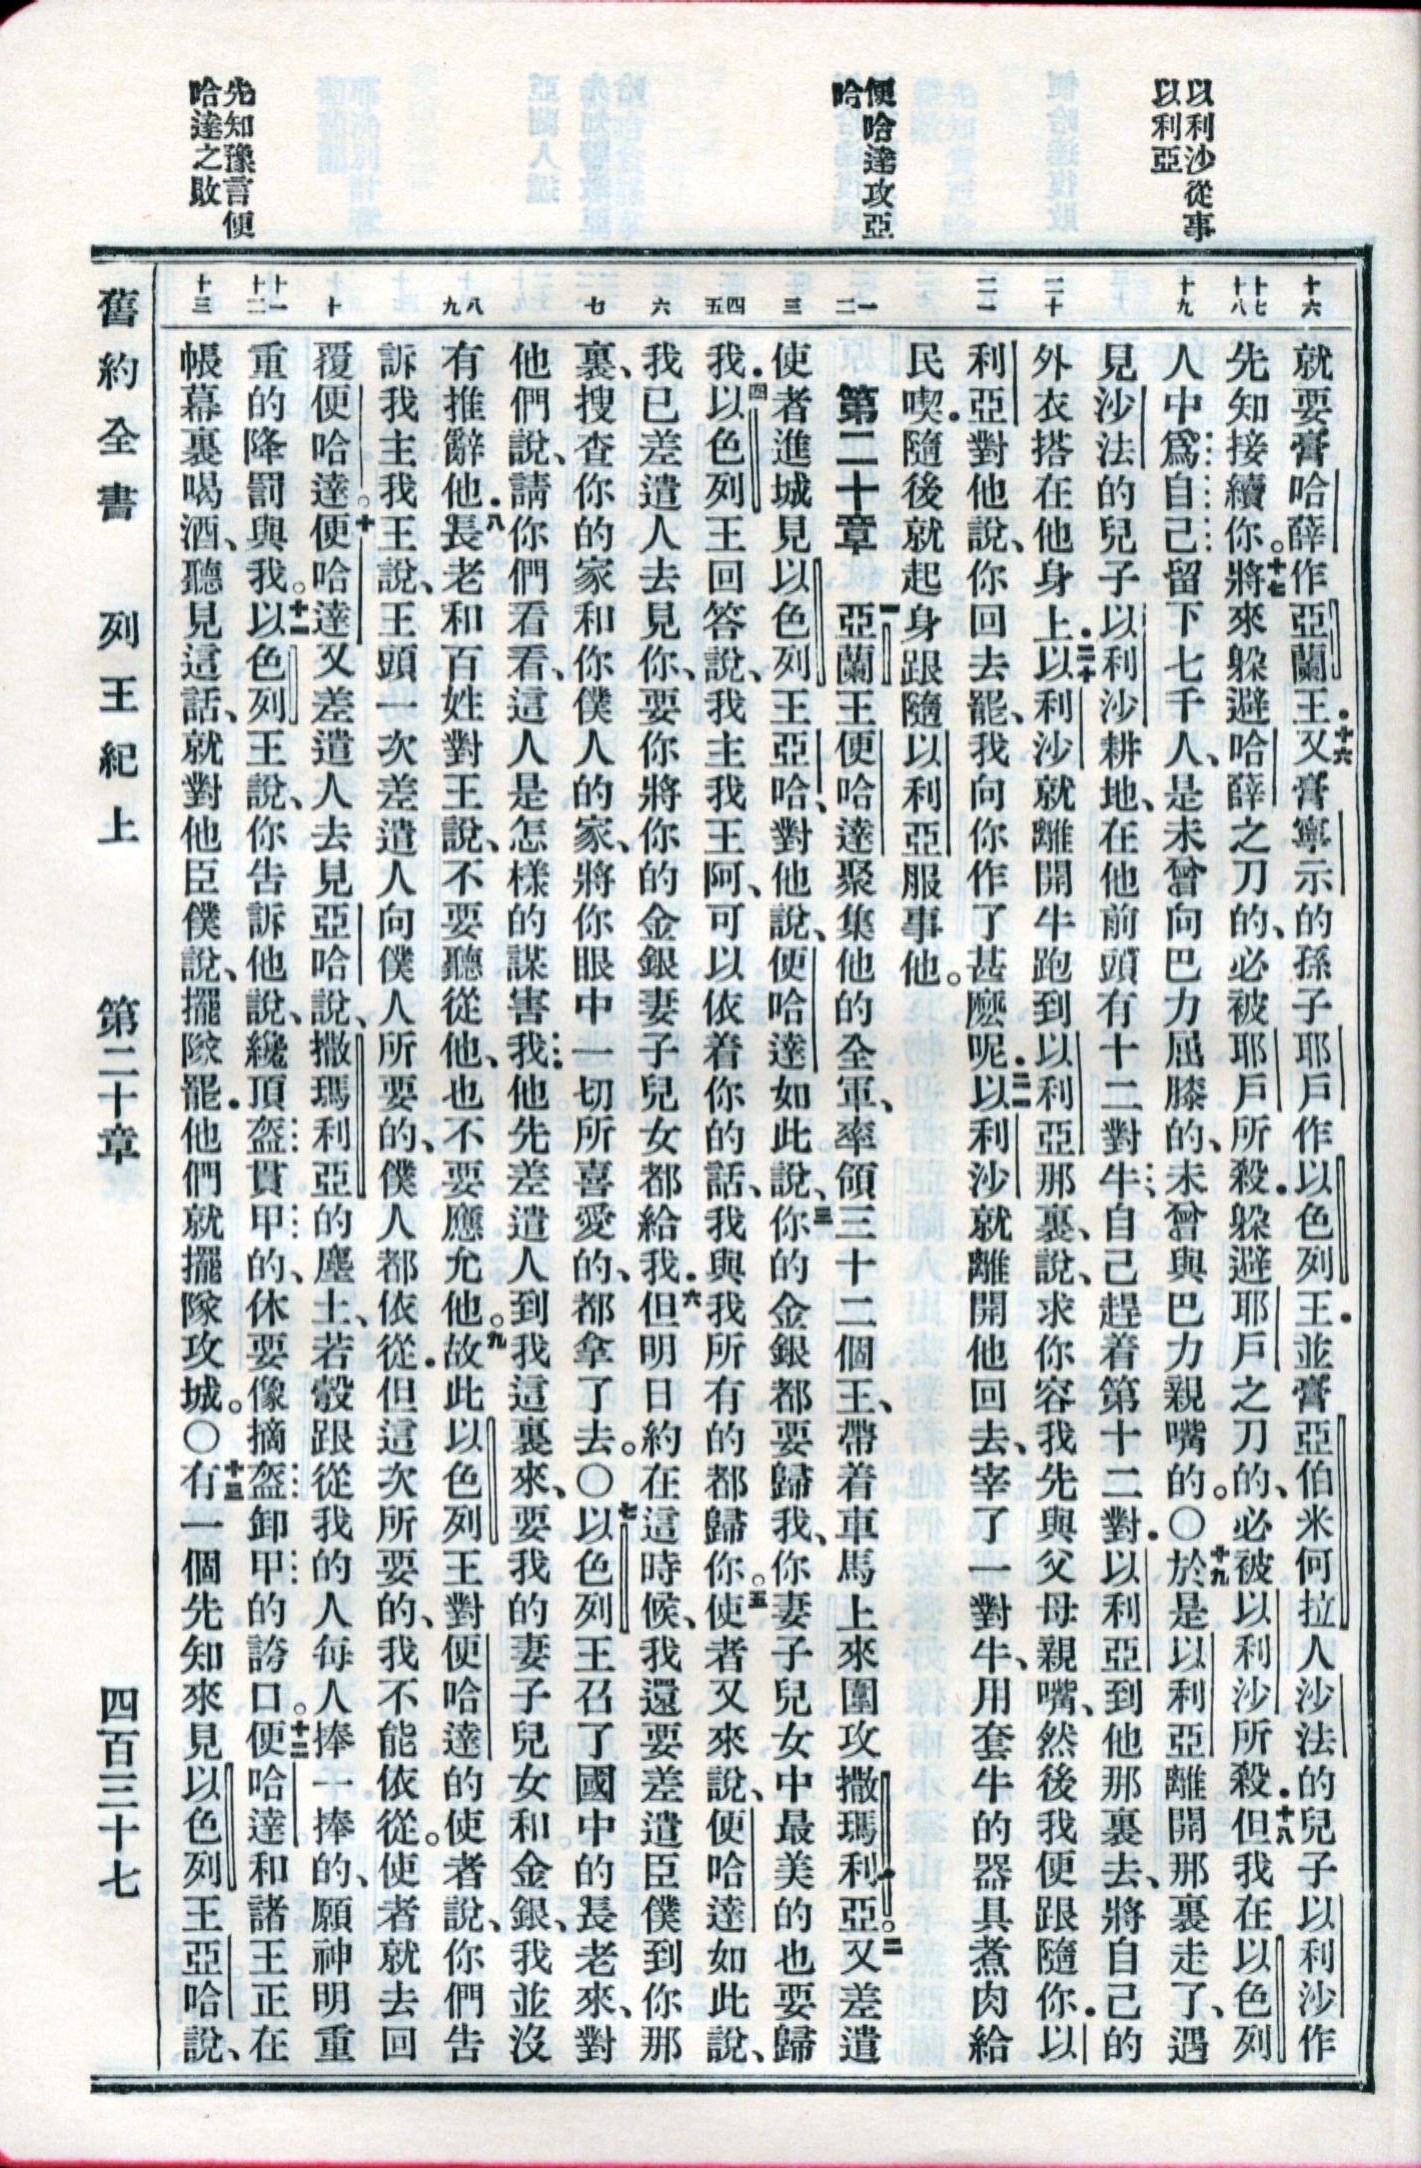 以利沙從事
以利亞
便哈達攻亞
哈
先知豫言便
哈達之敗
十六
十七
十八
十九
二十
二一
一
二
三
四
五
六
七
八
九
十
十一
十二
十三
就要膏哈薛作亞蘭王十六又膏寧示的孫子耶戶作以色列王．並膏亞伯米何拉人沙法的兒子以利沙作
先知接續你。十七將來躲避哈薛之刀的、必被耶戶所殺．躲避耶戶之刀的、必被以利沙所殺．十八但我在以色列
人中爲自己留下七千人、是未曾向巴力屈膝的、未曾與巴力親嘴的。〇十九於是以利亞離開那裏走了、遇
見沙法的兒子以利沙耕地、在他前頭有十二對牛、自己趕着第十二對．以利亞到他那裏去、將自己的
外衣搭在他身上．二十以利沙就離開牛跑到以利亞那裏、說、求你容我先與父母親嘴、然後我便跟隨你．以
利亞對他說、你回去罷、我向你作了甚麽呢．二一以利沙就離開他回去、宰了一對牛、用套牛的器具煮肉給
民喫．隨後就起身跟隨以利亞服事他。
第二十章　一亞蘭王便哈達聚集他的全軍、率領三十二個王、帶着車馬上來圍攻撒瑪利亞。二又差遣
使者進城見以色列王亞哈、對他說、便哈達如此說、三你的金銀都要歸我、你妻子兒女中最美的也要歸
我．四以色列王回答說、我主我王阿、可以依着你的話、我與我所有的都歸你。五使者又來說、便哈達如此說、
我已差遣人去見你、要你將你的金銀妻子兒女都給我．六但明日約在這時候、我還要差遣臣僕到你那
裏、搜查你的家和你僕人的家、將你眼中一切所喜愛的、都拿了去。〇七以色列王召了國中的長老來、對
他們說、請你們看看、這人是怎樣的謀害我他先差遣人到我這裏來、要我的妻子兒女和金銀、我並沒
有推辭他．八長老和百姓對王說、不要聽從他、也不要應允他。九故此以色列王對便哈達的使者說、你們告
訴我主我王說、王頭一次差遣人向僕人所要的、僕人都依從．但這次所要的、我不能依從。使者就去回
覆便哈達。十便哈達又差遣人去見亞哈說、撒瑪利亞的塵土、若彀跟從我的人每人捧一捧的、願神明重
重的降罰與我。十一以色列王說、你告訴他說、纔頂盔貫甲的、休要像摘盔卸甲的誇口。十二便哈達和諸王正在
帳幕裏喝酒、聽見這話、就對他臣僕說、擺隊罷．他們就擺隊攻城。〇十三有一個先知來見以色列王亞哈說、
舊約全書　列王紀上　第二十章　四百三十七